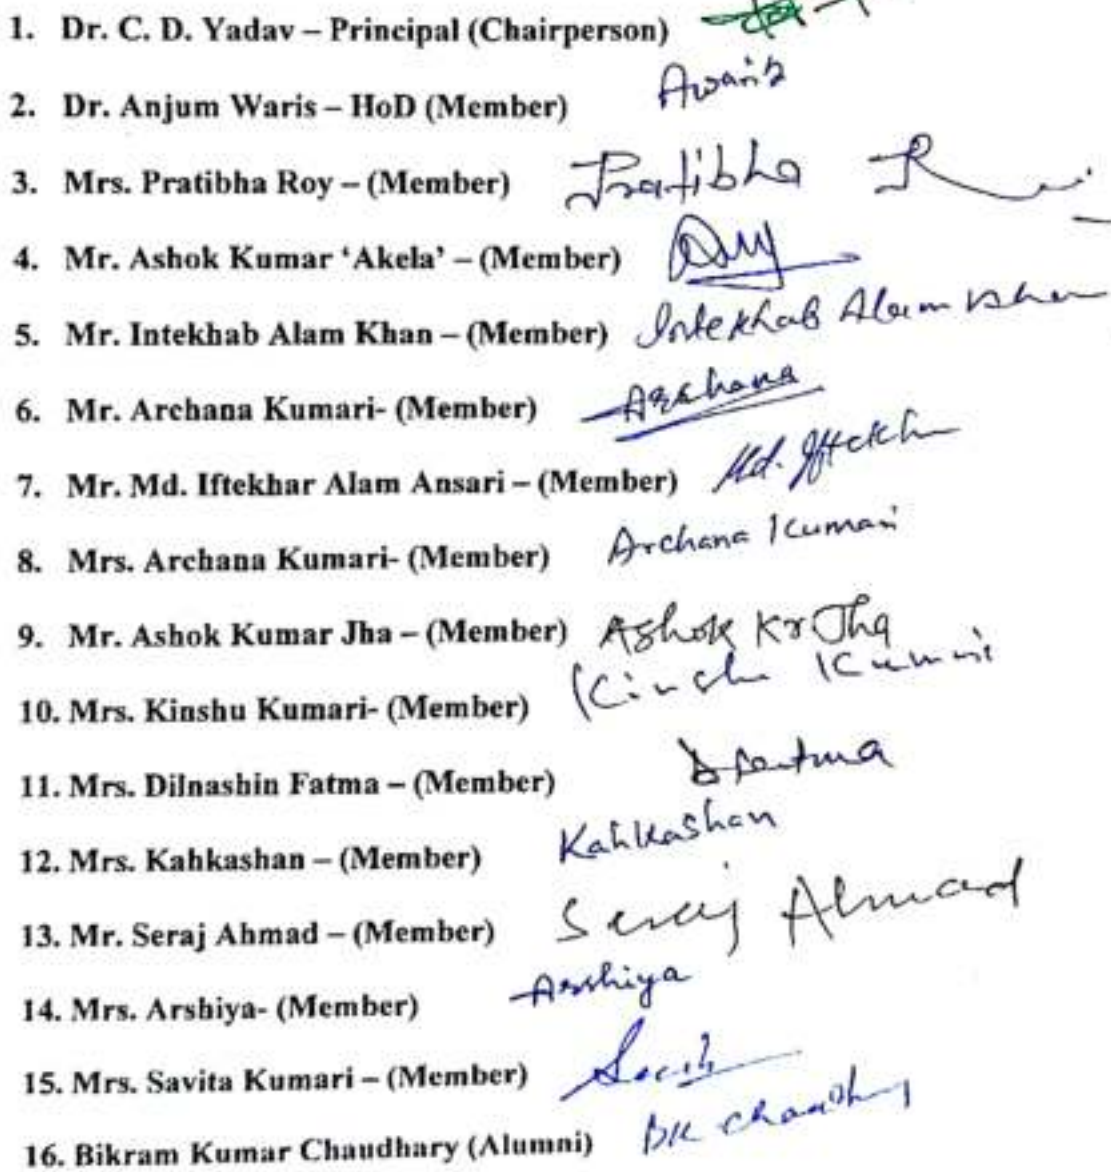 1. Dr. C. D. Yadav – Principal (Chairperson)
2. Dr. Anjum Waris – HoD (Member) Awaris
3. Mrs. Pratibha Roy – (Member) Pratibha
4. Mr. Ashok Kumar ‘Akela’ – (Member)
5. Mr. Intekhab Alam Khan – (Member) Intekhab Alam Khan
6. Mr. Archana Kumari- (Member) Archana
7. Mr. Md. Iftekhar Alam Ansari – (Member) Md. Iftekh
8. Mrs. Archana Kumari- (Member) Archana Kumari
9. Mr. Ashok Kumar Jha – (Member) Ashok Kr Jha
10. Mrs. Kinshu Kumari- (Member) Kinshu Kumari
11. Mrs. Dilnashin Fatma – (Member) D Fatma
12. Mrs. Kahkashan – (Member) Kahkashan
13. Mr. Seraj Ahmad – (Member) Seraj Ahmad
14. Mrs. Arshiya- (Member) Arshiya
15. Mrs. Savita Kumari – (Member)
16. Bikram Kumar Chaudhary (Alumni) BK Chaudhary